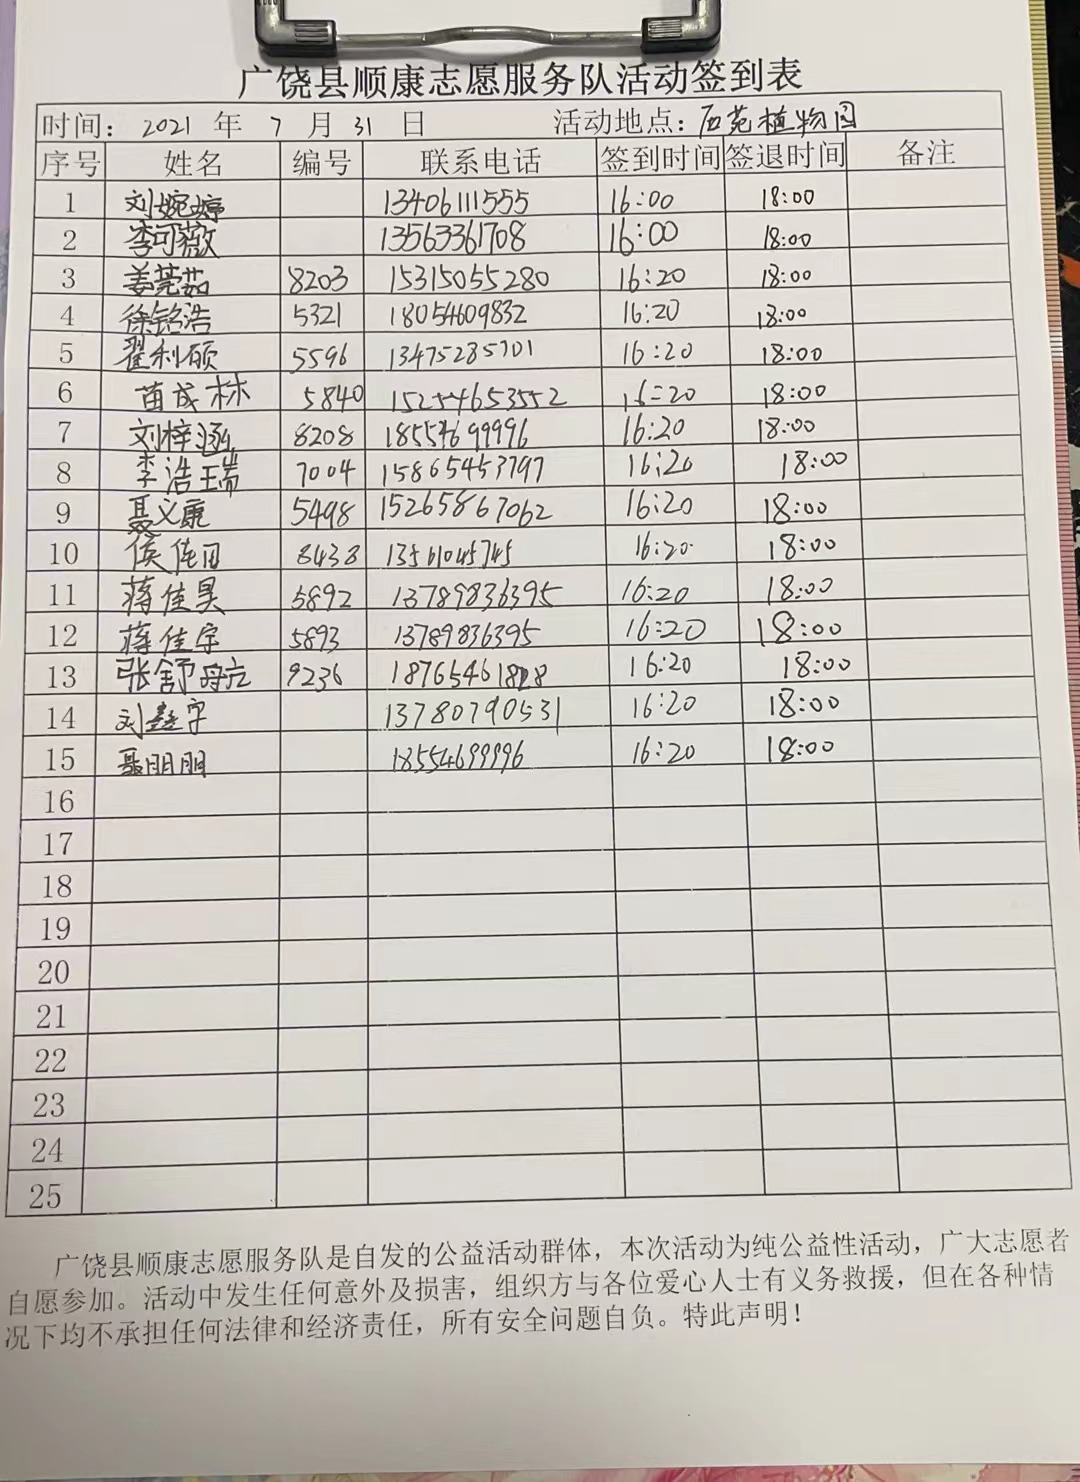 广饶县顺康志愿服务队活动签到表
时间：2021 年 7 月 31 日 活动地点：西苑植物园
序号 姓名 编号 联系电话 签到时间 签退时间 备注
1 刘婉婷 13406111555 16:00 18:00
2 李可薇 13563361708 16:00 18:00
3 姜莞茹 8203 15315055280 16:20 18:00
4 徐铭浩 5321 18054609832 16:20 18:00
5 翟利硕 5596 13475285701 16:20 18:00
6 苗成林 5840 15254653552 16:20 18:00
7 刘梓涵 8208 18554699996 16:20 18:00
8 李浩瑞 7004 15865453797 16:20 18:00
9 聂义康 5498 15265867062 16:20 18:00
10 侯佳田 8438 13561045745 16:20 18:00
11 蒋佳昊 5892 13789836395 16:20 18:00
12 蒋佳宇 5893 13789836395 16:20 18:00
13 张舒航 9236 18765461828 16:20 18:00
14 刘鑫宇 13780790531 16:20 18:00
15 聂朋朋 18554699996 16:20 18:00
16
17
18
19
20
21
22
23
24
25
广饶县顺康志愿服务队是自发的公益活动群体，本次活动为纯公益性活动，广大志愿者
自愿参加。活动中发生任何意外及损害，组织方与各位爱心人士有义务救援，但在各种情
况下均不承担任何法律和经济责任，所有安全问题自负。特此声明！